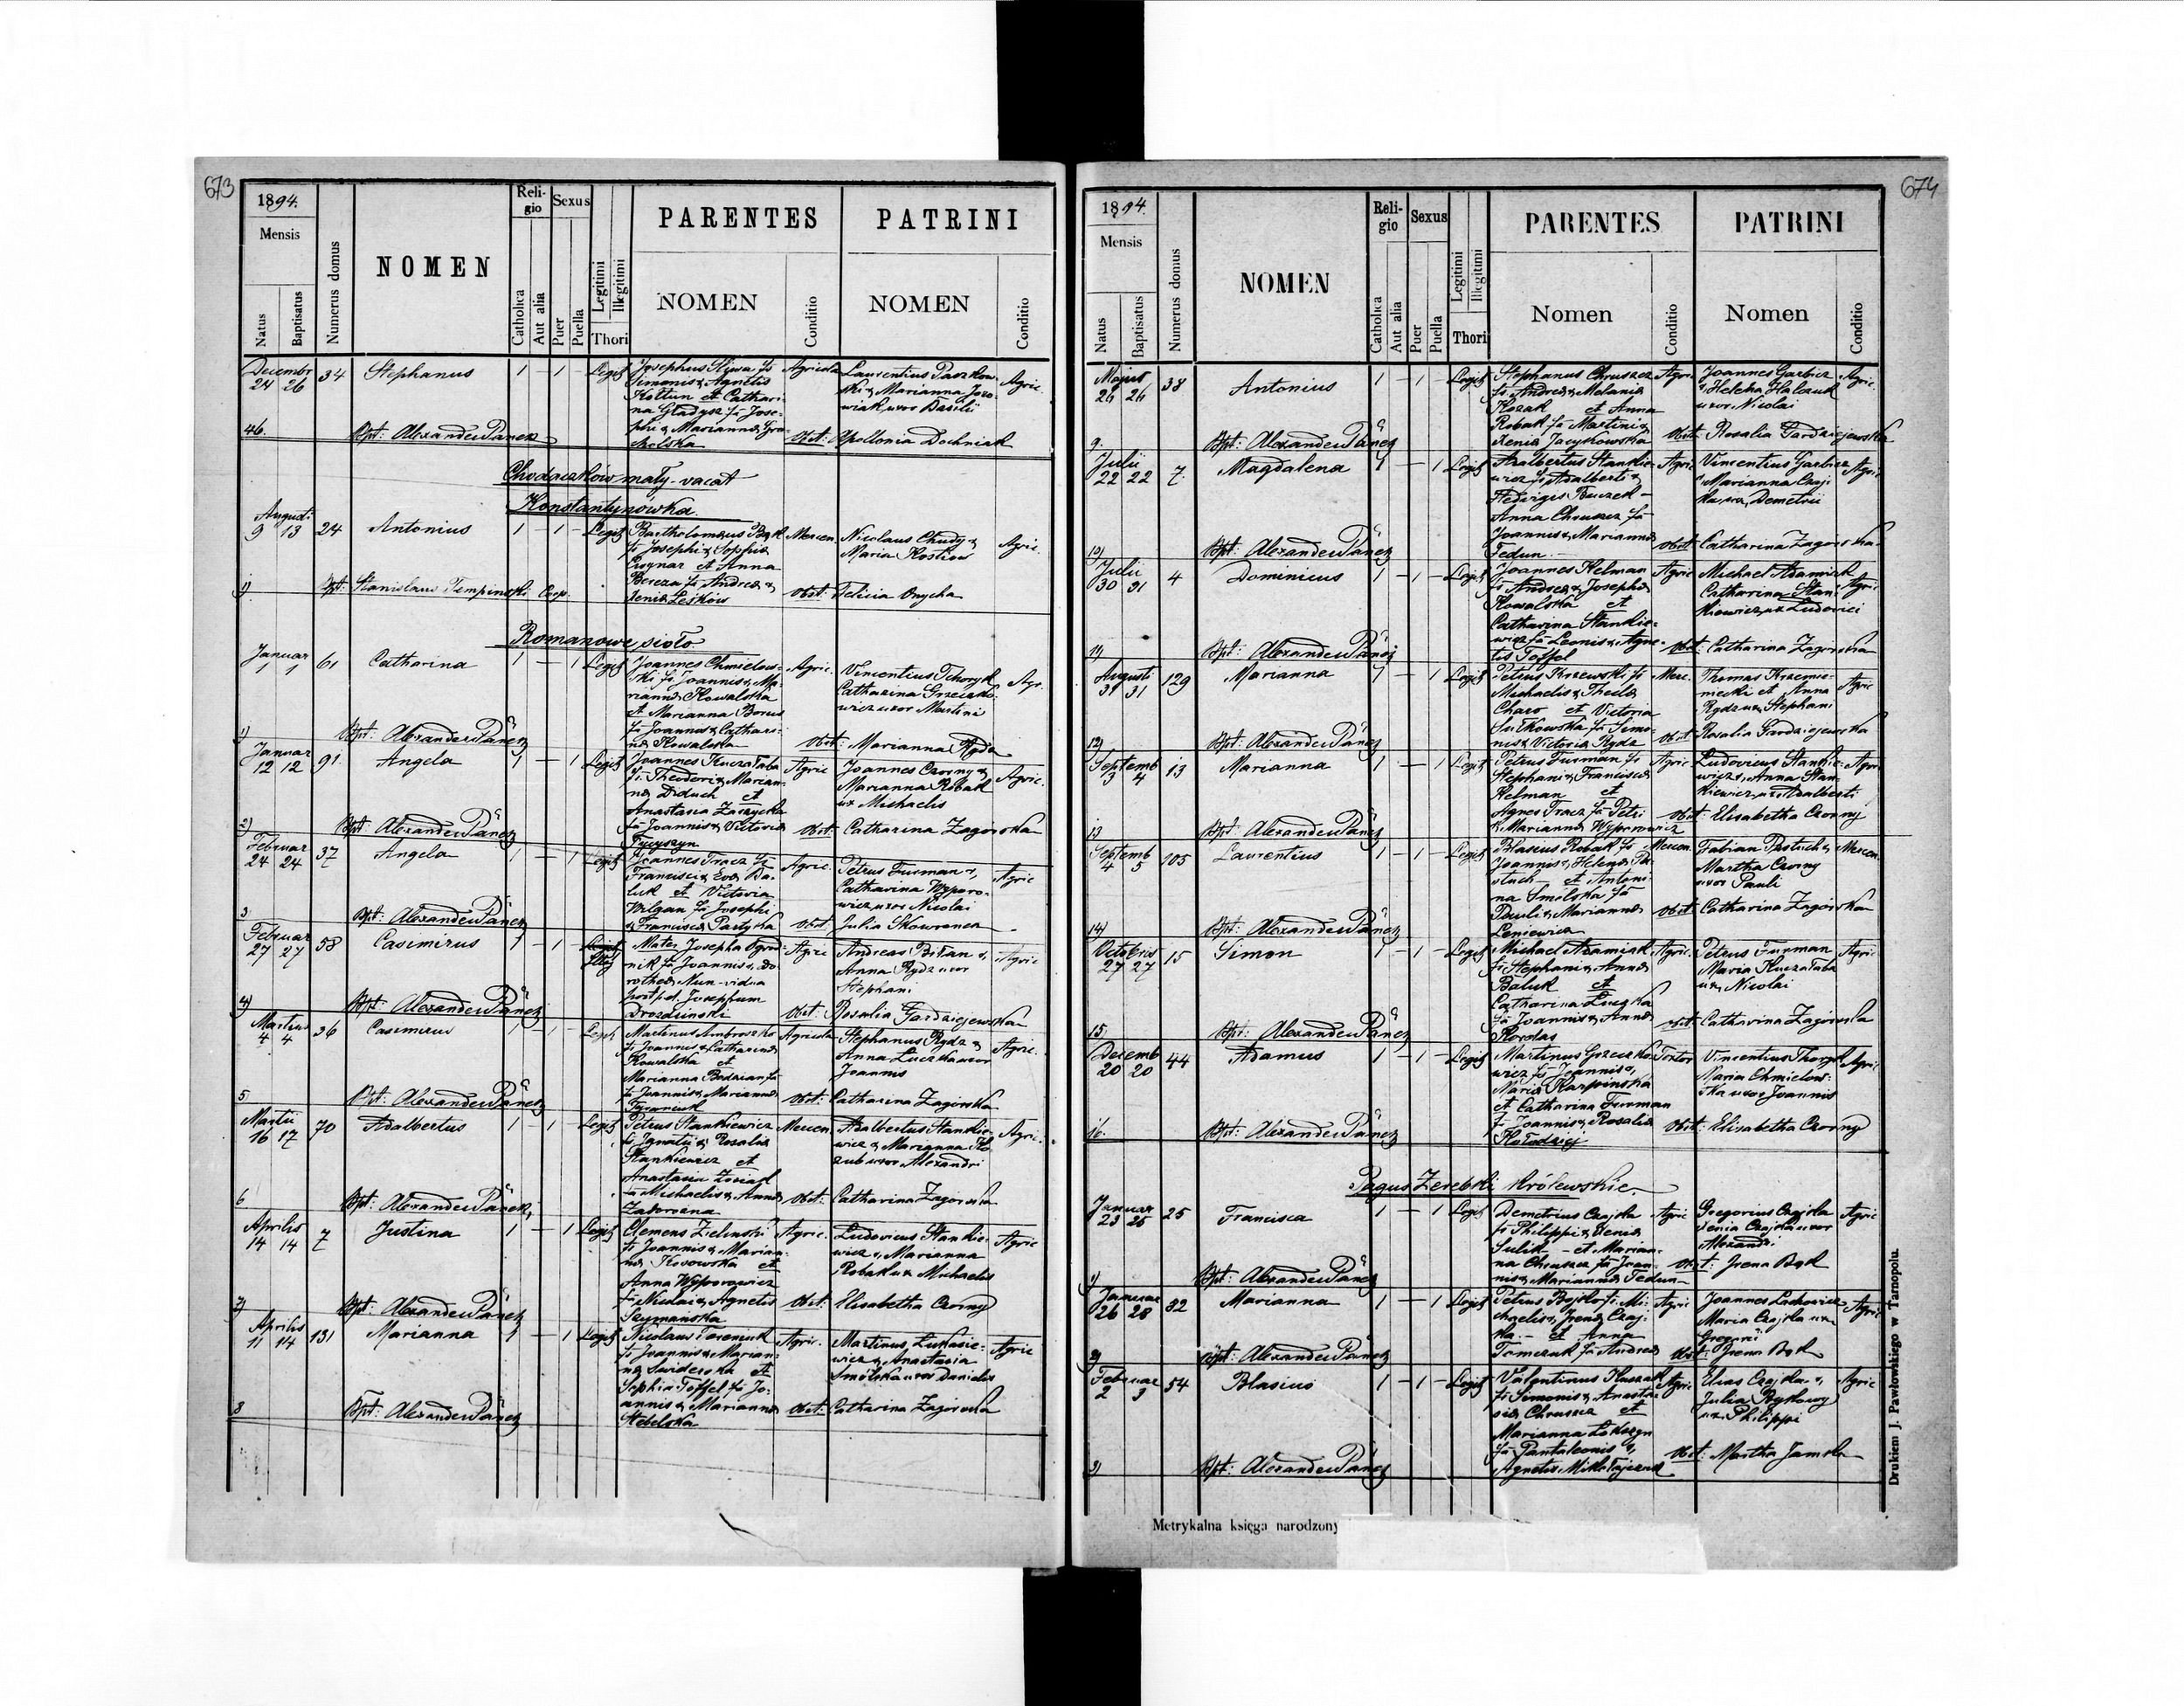 673
1894.
Mensis
Natus
Baptisatus
Numerus domus
NOMEN
Religio
Catholica
Aut alia
Sexus
Puer
Puella
Legitimi
Illegitimi
Thori
PARENTES
NOMEN
Conditio
PATRINI
NOMEN
Conditio
Decembr
24 26 34 Stephanus 1 – 1 – Legit
Josephus Śliwa fs
Simonis & Agnetis
Kottun et Cathari-
na Gładysz fa Jose-
phi & Marianna
Agricola
Laurentius Paszkow-
ski & Marianna
uxor Basilii
Agric.
46. Bpt: Alexander Pänck
Obst: Apollonia Dochniak
Chodaczków mały – vacat
Konstantynówka.
Augusti
9 13 24 Antonius 1 – 1 – Legit
Bartholomaeus Bąk
fs Josephi & Sophia
Cwynar et Anna
Bereza fa Andrea &
Xenia Leśków
Mercen.
Nicolaus Chudy &
Maria Kostiów
Agric.
1) Bpt: Stanislaus Tempinski Coop.
Obst: Felicia Onycha
Romanowe sioło
Januar
1 1 61 Catharina 1 – – 1 Legit
Joannes Chmielow-
ski fs Joannis & Ma-
rianna Kowalska
et Marianna Borus
fa Joannis & Cathari-
na Kowalska
Agric.
Vincentius Tchoryk
Catharina Grzeszko-
wicz uxor Martini
Agr.
1) Bpt: Alexander Pänck
Obst: Marianna Rydz
Januar
12 12 91 Angela 1 – – 1 Legit
Joannes Kuczałaba
fs Theodori & Marian-
na Diduch et
Anastasia Zarzycka
fa Joannis & Victoria
Agric
Joannes Czorny &
Marianna Robak
ux Michaelis
Agric.
2) Bpt: Alexander Pänck
Obst: Catharina Zagorska
Februar
24 24 37 Angela 1 – – 1 Legit
Joannes Tracz fs
Francisci & Eva Ba-
luk et Victoria
Wilgan fa Josephi
& Francisca Partyka
Agric.
Petrus Furman &
Catharina Wyporo-
wicz uxor Nicolai
Agric
3 Bpt: Alexander Pänck
Obst. Julia Skowronea
Februar
27 27 58 Casimirus 1 – 1 – Illeg
Mater Josepha Ogrod-
nik fa Joannis & Do-
rothea Nun – vidua
post p.d. Josephum
Drozdziński
Agric
Andreas Bilan &
Anna Rydz uxor
Stephani
Agric
4) Bpt: Alexander Pänck
Obst: Rosalia Gardziejewska
Martius
4 4 36 Casimirus 1 – 1 – Legit
Martinus Ambroszko
fs Joannis & Catharina
Kowalska et
Marianna Bodzian fa
Joannis & Marianna
Agricola
Stephanus Rydz &
Anna Luczka uxor
Joannis
Agric.
5 Bpt: Alexander Pänck
Obst: Catharina Zagorska
Martii
16 17 70 Adalbertus 1 – 1 – Legit
Petrus Stankiewicz
fs Ignatii & Rosalia
Stankiewicz et
Anastasia
fa Michaelis & Anna
Mercen.
Adalbertus Stankie-
wicz & Marianna Ko-
zub uxor Alexandri
Agric.
6 Bpt: Alexander Pänck
Obst: Catharina Zagorska
Aprilis
14 14 7 Justina 1 – – 1 Legit
Clemens Zielinski
fs Joannis & Marian-
na Kosowska et
Anna Wyporowicz
fa Nicolai & Agnetis
Szymańska
Agric.
Ludovicus Stankie-
wicz & Marianna
Robak ux Michaelis
Agric
7) Bpt: Alexander Pänck
Obst: Elisabetha Czorny
Aprilis
11 14 131 Marianna 1 – – 1 Legit
Nicolaus Jaremczuk
fs Joannis & Marian-
na Swiderska et
Sophia Toffel fa Jo-
annis & Marianna
Stebelska
Agric.
Martinus Łukasie-
wicz & Anastasia
Smolska uxor Danielis
Agric
8 Bpt: Alexander Pänck
Obst: Catharina Zagorska
674
1894.
Mensis
Natus
Baptisatus
Numerus domus
NOMEN
Religio
Catholica
Aut alia
Sexus
Puer
Puella
Legitimi
Illegitimi
Thori
PARENTES
Nomen
Conditio
PATRINI
Nomen
Conditio
Majus
26 26 38 Antonius 1 – 1 – Legit
Stephanus Chruszcz
fs Andrea & Melania
Kozak et Anna
Robak fa Martini &
Xenia Jacykowska
Agric
Joannes Garbicz
& Helena Halczuk
uxor Nicolai
Agric.
9. Bpt: Alexander Pänck
Obst. Rosalia Gardziejewska
Julii
22 22 7. Magdalena 1 – – 1 Legit
Adalbertus Stankie-
wicz fs Adalberti &
Hedvigis Buczek –
Anna Chruszcz fa
Joannis & Marianna
Fedun.
Agric.
Vincentius Garbicz
& Marianna Czaj-
ka uxor Demetrii
Agric
10) Bpt: Alexander Pänck
Obst: Catharina Zagorska
Julii
30 31 4 Dominicus 1 – 1 – Legit
Joannes Helman
fs Andrea & Josepha
Kowalska et
Catharina Stankie-
wicz fa Leonis & Agne-
tis Toffel
Agric
Michael Adamiak
Catharina Stan-
kiewicz ux Ludovici
Agric
11) Bpt: Alexander Pänck
Obst: Catharina Zagorska
Augusti
31 31 129 Marianna 1 – – 1 Legit
Petrus Krzewski fs
Michaelis & Thecla
Charo et Victoria
Sutkowska fa Simo-
nis & Victoria Rydz
Merc.
Thomas Krzemie-
niecki et Anna
Rydz ux Stephani
Agric
12) Bpt: Alexander Pänck
Obst Rosalia Gardziejewska
Septemb
3 4 13 Marianna 1 – – 1 Legit
Petrus Furman fs
Stephani & Francisca
Helman et
Agnes Tracz fa Petri
& Marianna Wyporowicz
Agric
Ludovicus Stankie-
wicz & Anna Stan-
kiewicz ux Adalberti
Agric
13 Bpt: Alexander Pänck
Obst: Elisabetha Czorny
Septemb
4 5 105 Laurentius 1 – 1 – Legit
Blasius Robak fs
Joannis & Helena Pa-
stuch et Antoni-
na Smolska fa
Pauli & Marianna
Leniewicz
Mercen.
Fabian Pastuch &
Martha Czorny
uxor Pauli
Mercen.
14) Bpt: Alexander Pänck
Obst: Catharina Zagorska
Octobris
27 27 15 Simon 1 – 1 – Legit
Michael Adamiak
fs Stephani & Anna
Baluk et
Catharina
fa Joannis & Anna
Agric.
Petrus Furman
Maria Kuczałaba
ux. Nicolai
Agric
15. Bpt: Alexander Pänck
Obst: Catharina Zagorska
Decemb
20 20 44 Adamus 1 – 1 – Legit
Martinus Grzeszko-
wicz fs Joannis &
Maria Karpinska
et Catharina Furman
fa Joannis & Rosalia
Kołodzey
Vincentius Thoryk
Maria Chmielow-
ska uxor Joannis
Agric
16. Bpt: Alexander Pänck
Obst: Elisabetha Czorny
Pagus Zerebki królewskie.
Januar
23 25 25 Francisca 1 – – 1 Legit
Demetrius Czajka
fs Philippi & Xenia
Sulik – et Marian-
na Chruszcz fa Joan-
nis & Marianna Fedun
Agric
Gregorius Czajka
Xenia Czajka uxor
Alexandri
Agric
1) Bpt: Alexander Pänck
Obst: Irena Bąk
Januar
26 28 32 Marianna 1 – – 1 Legit
Petrus Bojko fs Mi-
chaelis & Irena Czaj-
ka – et Anna
Tomczuk fa Andrea
Agric
Joannes Lachowicz
Maria Czajka ux.
Gregorii
Agric
2) Bpt: Alexander Pänck
Obst: Irena Bąk
Februar
2 3 54 Blasius 1 – 1 – Legit
Valentinus Huszak
fs Simonis & Anasta-
sia Chruszcz et
Marianna Łokszyn
fa Pantaleonis &
Agnetis Mikołajczuk
Agric
Elias Czajka &
Julia Bykowy
ux. Philippi
Agric
3) Bpt: Alexander Pänck
Obst: Martha Jamska
Metrykalna księga narodzony
Drukiem J. Pawłowskiego w Tarnopolu.